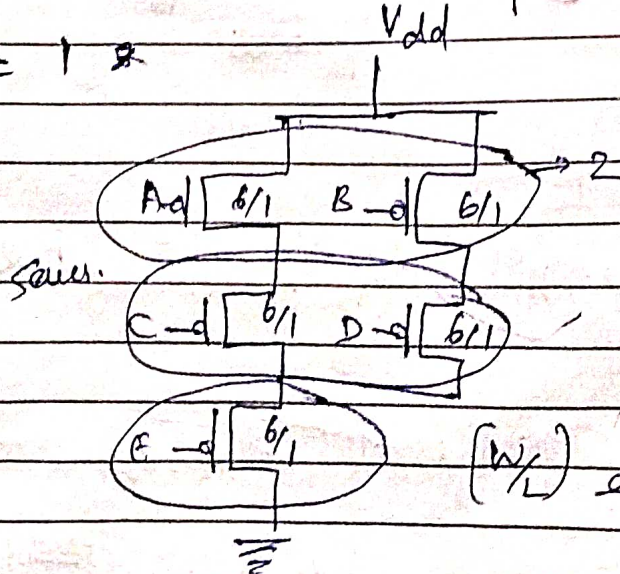 Vdd
= 1
A 6/1 B 6/1 → 2
series.
C 6/1 D 6/1
E 6/1
(W/L)